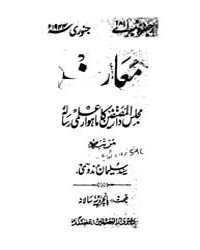 جنوری
معارف
مجلس دارالمصنفین کا ماہوار علمی رسالہ
مرتبہ
سید سلیمان ندوی
قیمت: پانچ روپیہ سالانہ